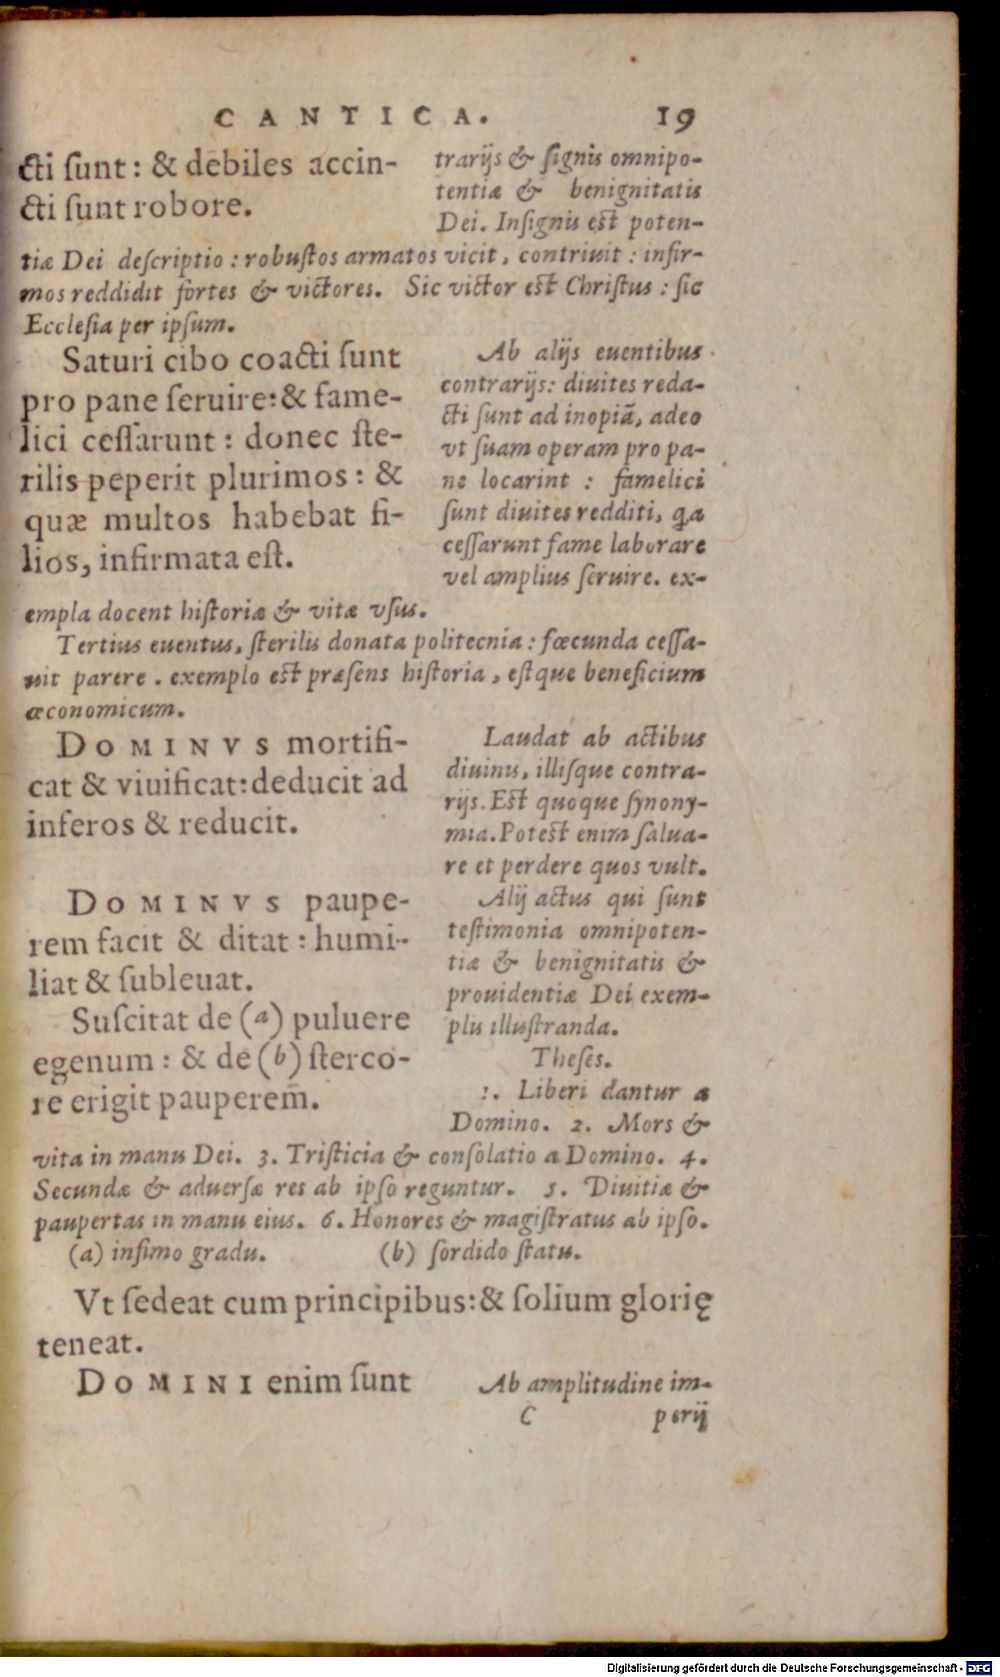 CANTICA. 19
cti ſunt: & debiles accin-
cti ſunt robore.
trarijs & ſignis omnipo-
tentiæ & benignitatis
Dei. Inſignis est poten-
tiæ Dei deſcriptio: robuſtos armatos vicit, contriuit: infir-
mos reddidit fortes & victores. Sic victor est Chriſtus: ſic
Eccleſia per ipſum.
Saturi cibo coacti ſunt
pro pane ſeruire: & fame-
lici ceſſarunt: donec ſte-
rilis peperit plurimos: &
quæ multos habebat fi-
lios, infirmata eſt.
Ab alijs euentibus
contrarijs: diuites reda-
cti ſunt ad inopiā, adeo
vt ſuam operam pro pa-
ne locarint: famelici
ſunt diuites redditi, qa
ceſſarunt fame laborare
vel amplius ſeruire. ex-
empla docent hiſtoriæ & vitæ vſus.
Tertius euentus, ſterilis donata politecnia: fœcunda ceſſa-
uit parere. exemplo est præſens hiſtoria, eſtque beneficium
œconomicum.
DOMINVS mortifi-
cat & viuificat: deducit ad
inferos & reducit.
Laudat ab actibus
diuinis, illiſque contra-
rijs. Est quoque ſynony-
mia. Potest enim ſalua-
re et perdere quos vult.
DOMINVS paupe-
rem facit & ditat: humi-
liat & ſubleuat.
Suſcitat de (a) puluere
egenum: & de (b) ſterco-
re erigit pauperem̄.
Alij actus qui ſunt
teſtimonia omnipoten-
tiæ & benignitatis &
prouidentiæ Dei exem-
plis illuſtranda.
Theſes.
1. Liberi dantur a
Domino. 2. Mors &
vita in manu Dei. 3. Triſticia & conſolatio a Domino. 4.
Secundæ & aduerſæ res ab ipſo reguntur. 5. Diuitiæ &
paupertas in manu eius. 6. Honores & magiſtratus ab ipſo.
(a) infimo gradu. (b) ſordido ſtatu.
Vt ſedeat cum principibus: & ſolium glorię
teneat.
DOMINI enim ſunt
Ab amplitudine im-
C perij
Digitalisierung gefördert durch die Deutsche Forschungsgemeinschaft - DFG